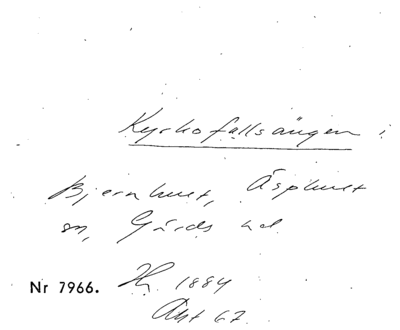 Kyrkofallsängen i
Bjernhult, Äsphult
sn, Gärds hd
Nr 7966. Hk. 1884
Akt 67.